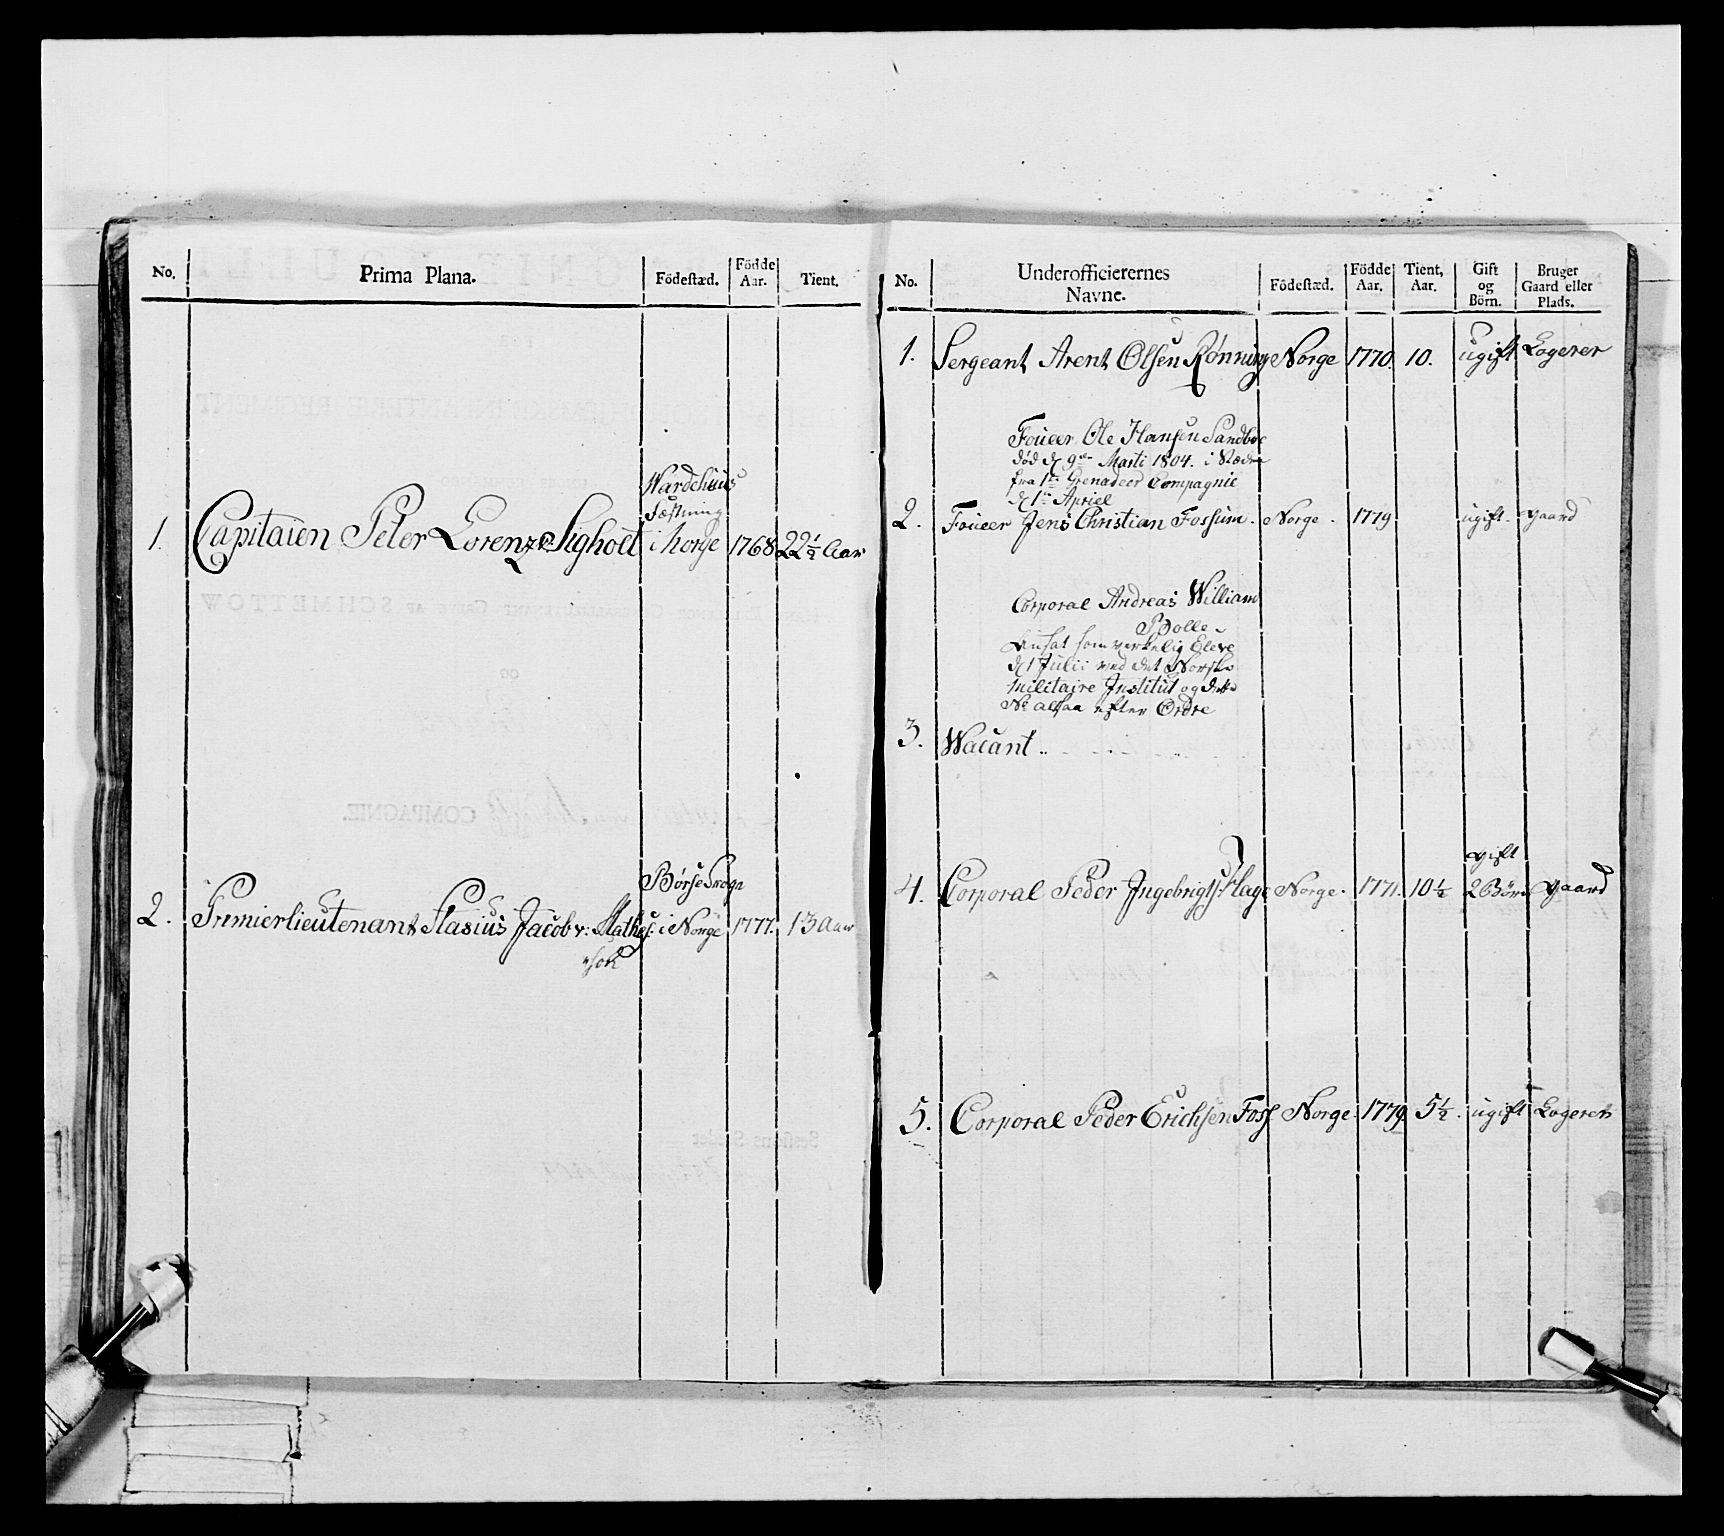 No. Prima Plana. Födestæd. Födde Aar. Tient.
Wardehuus
Fæstning
1. Capitaien Peter Lorenz v: Sigholt i Norge 1768 22½ Aar
Börse Srogn
2. Premierlieutenant Stasius Jacob v: Mathes: i Norge 1777. 13 Aar
son
No. Underofficierernes Navne. Födestæd. Födde Aar. Tient, Aar. Gift og Börn. Bruger Gaard eller Plads.
1. Sergeant Arent Olsen Rönning Norge 1770. 10. ugift Logerer
Foueer Ole Hansen Sandboe
död d 9de Marti 1804. i Stæden
fra 1te Grenadeer Compagnie
d 1te Apriel
2. Foueer Jens Christian Fossum. Norge. 1779 ugift. gaard
Corporal Andreas William
Bolle
Ansat som verkelig Eleve
d 1 Julii ved det Norske
Militaire Institut og dette
No altsaa efter Ordre
3. Wacant
gift
4. Corporal Peder Ingebrigts: Hage Norge. 1771. 10½ 2 Börn gaard
5. Corporal Peder Erichsen Foss Norge 1779. 5½. ugift Logerer